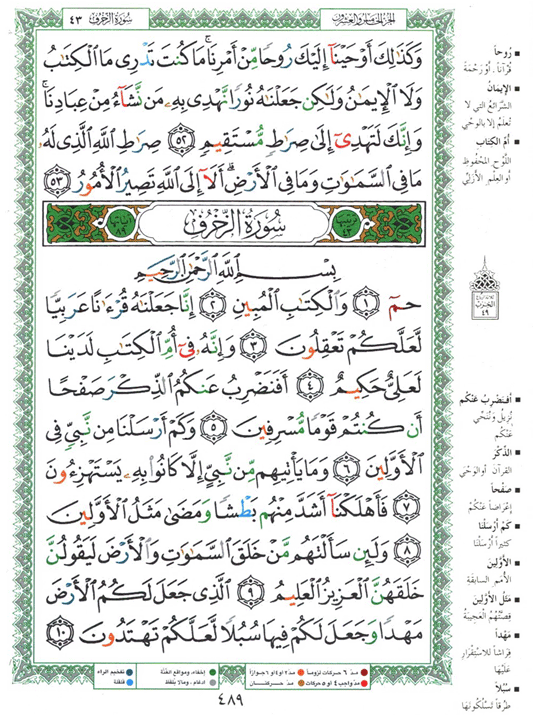 سُورَةُ الزُّخْرُفِ ٤٣
الجزء الخامس والعشرون
وَكَذَٰلِكَ أَوْحَيْنَآ إِلَيْكَ رُوحًا مِّنْ أَمْرِنَا ۚ مَا كُنتَ تَدْرِى مَا ٱلْكِتَٰبُ
وَلَا ٱلْإِيمَٰنُ وَلَٰكِن جَعَلْنَٰهُ نُورًا نَّهْدِى بِهِۦ مَن نَّشَآءُ مِنْ عِبَادِنَا ۚ
وَإِنَّكَ لَتَهْدِىٓ إِلَىٰ صِرَٰطٍ مُّسْتَقِيمٍ ٥٢ صِرَٰطِ ٱللَّهِ ٱلَّذِى لَهُۥ
مَا فِى ٱلسَّمَٰوَٰتِ وَمَا فِى ٱلْأَرْضِ ۗ أَلَآ إِلَى ٱللَّهِ تَصِيرُ ٱلْأُمُورُ ٥٣
ترتيبها ٤٣ سُورَةُ الزُّخْرُفِ آياتها ٨٩
بِسْمِ ٱللَّهِ ٱلرَّحْمَٰنِ ٱلرَّحِيمِ
حمٓ ١ وَٱلْكِتَٰبِ ٱلْمُبِينِ ٢ إِنَّا جَعَلْنَٰهُ قُرْءَٰنًا عَرَبِيًّا
لَّعَلَّكُمْ تَعْقِلُونَ ٣ وَإِنَّهُۥ فِىٓ أُمِّ ٱلْكِتَٰبِ لَدَيْنَا
لَعَلِىٌّ حَكِيمٌ ٤ أَفَنَضْرِبُ عَنكُمُ ٱلذِّكْرَ صَفْحًا
أَن كُنتُمْ قَوْمًا مُّسْرِفِينَ ٥ وَكَمْ أَرْسَلْنَا مِن نَّبِىٍّ فِى
ٱلْأَوَّلِينَ ٦ وَمَا يَأْتِيهِم مِّن نَّبِىٍّ إِلَّا كَانُوا۟ بِهِۦ يَسْتَهْزِءُونَ
٧ فَأَهْلَكْنَآ أَشَدَّ مِنْهُم بَطْشًا وَمَضَىٰ مَثَلُ ٱلْأَوَّلِينَ
٨ وَلَئِن سَأَلْتَهُم مَّنْ خَلَقَ ٱلسَّمَٰوَٰتِ وَٱلْأَرْضَ لَيَقُولُنَّ
خَلَقَهُنَّ ٱلْعَزِيزُ ٱلْعَلِيمُ ٩ ٱلَّذِى جَعَلَ لَكُمُ ٱلْأَرْضَ
مَهْدًا وَجَعَلَ لَكُمْ فِيهَا سُبُلًا لَّعَلَّكُمْ تَهْتَدُونَ ١٠
رُوحاً
قُرْآناً . أوْ رَحْمَةً
الإيمانُ
الشَّرائعُ التي لا
تُعلَمُ إلا بالوحْي
أمُّ الكتاب
اللَّوْحِ المحْفُوظِ
أو العِلْمِ الأزليِّ
الحزب
٤٩
أفنَضْربُ عَنْكُم
نُزِيلُ ونُنَحِّي
عَنْكُم
الذِّكْرَ
القرآنَ أو الوَحْيَ
صَفْحاً
إعْرَاضاً عَنْكُمْ
كَمْ أرْسَلْنَا
كثيراً أرْسَلْنَا
الأوَّلِينَ
الأمَمِ السابقةِ
مَثَلُ الأوّلينَ
قِصَّتُهُمُ العَجِيبةُ
مَهْداً
فِرَاشاً للاسْتِقْرَارِ
عَلَيْها
سُبُلاً
طُرُقاً تَسْلُكُونَها
مدّ ٦ حركات لزوماً مدّ ٢ أو ٤ أو ٦ جوازاً إخفاء، ومواقع الغُنَّة تفخيم الراء
مدّ واجب ٤ أو ٥ حركات مدّ حركتان إدغام ، وما لا يُلفَظ قلقلة
٤٨٩